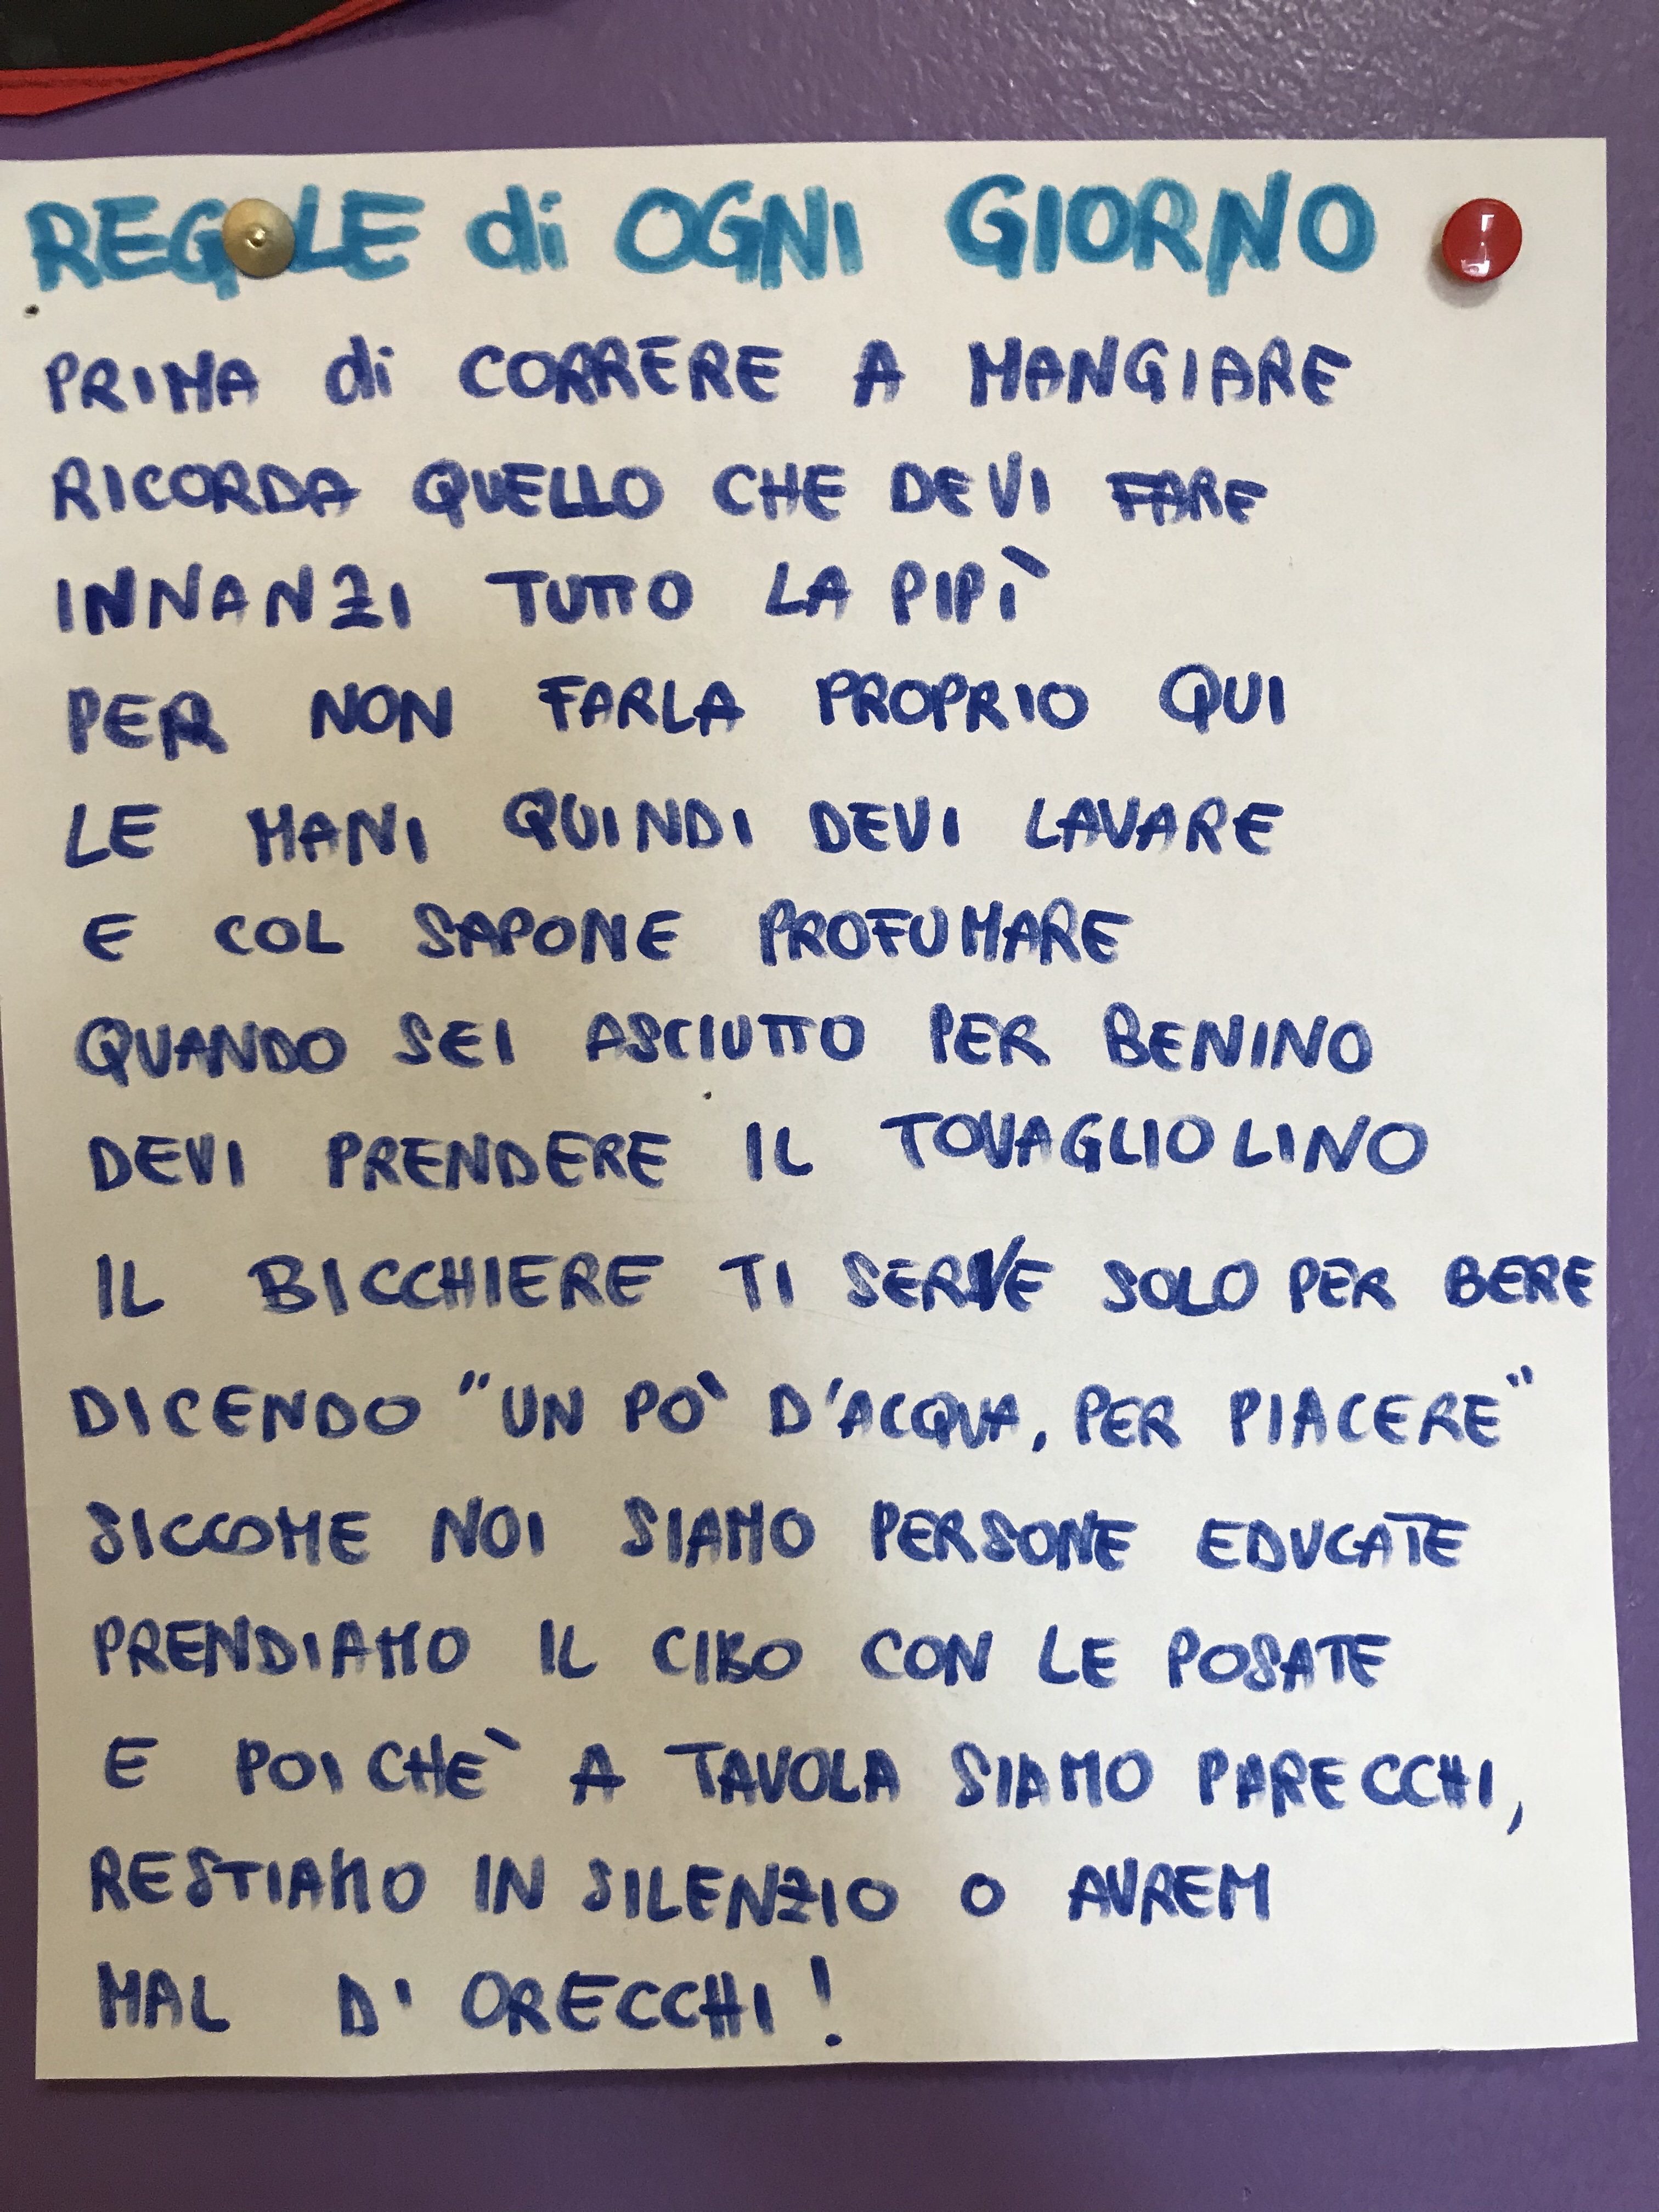 REGOLE di OGNI GIORNO
PRIMA di CORRERE A MANGIARE
RICORDA QUELLO CHE DEVI FARE
INNANZI TUTTO LA PIPÌ
PER NON FARLA PROPRIO QUI
LE MANI QUINDI DEVI LAVARE
E COL SAPONE PROFUMARE
QUANDO SEI ASCIUTTO PER BENINO
DEVI PRENDERE IL TOVAGLIOLINO
IL BICCHIERE TI SERVE SOLO PER BERE
DICENDO "UN PÒ D'ACQUA, PER PIACERE"
SICCOME NOI SIAMO PERSONE EDUCATE
PRENDIAMO IL CIBO CON LE POSATE
E POICHÈ A TAVOLA SIAMO PARECCHI,
RESTIAMO IN SILENZIO O AVREM
MAL D'ORECCHI!